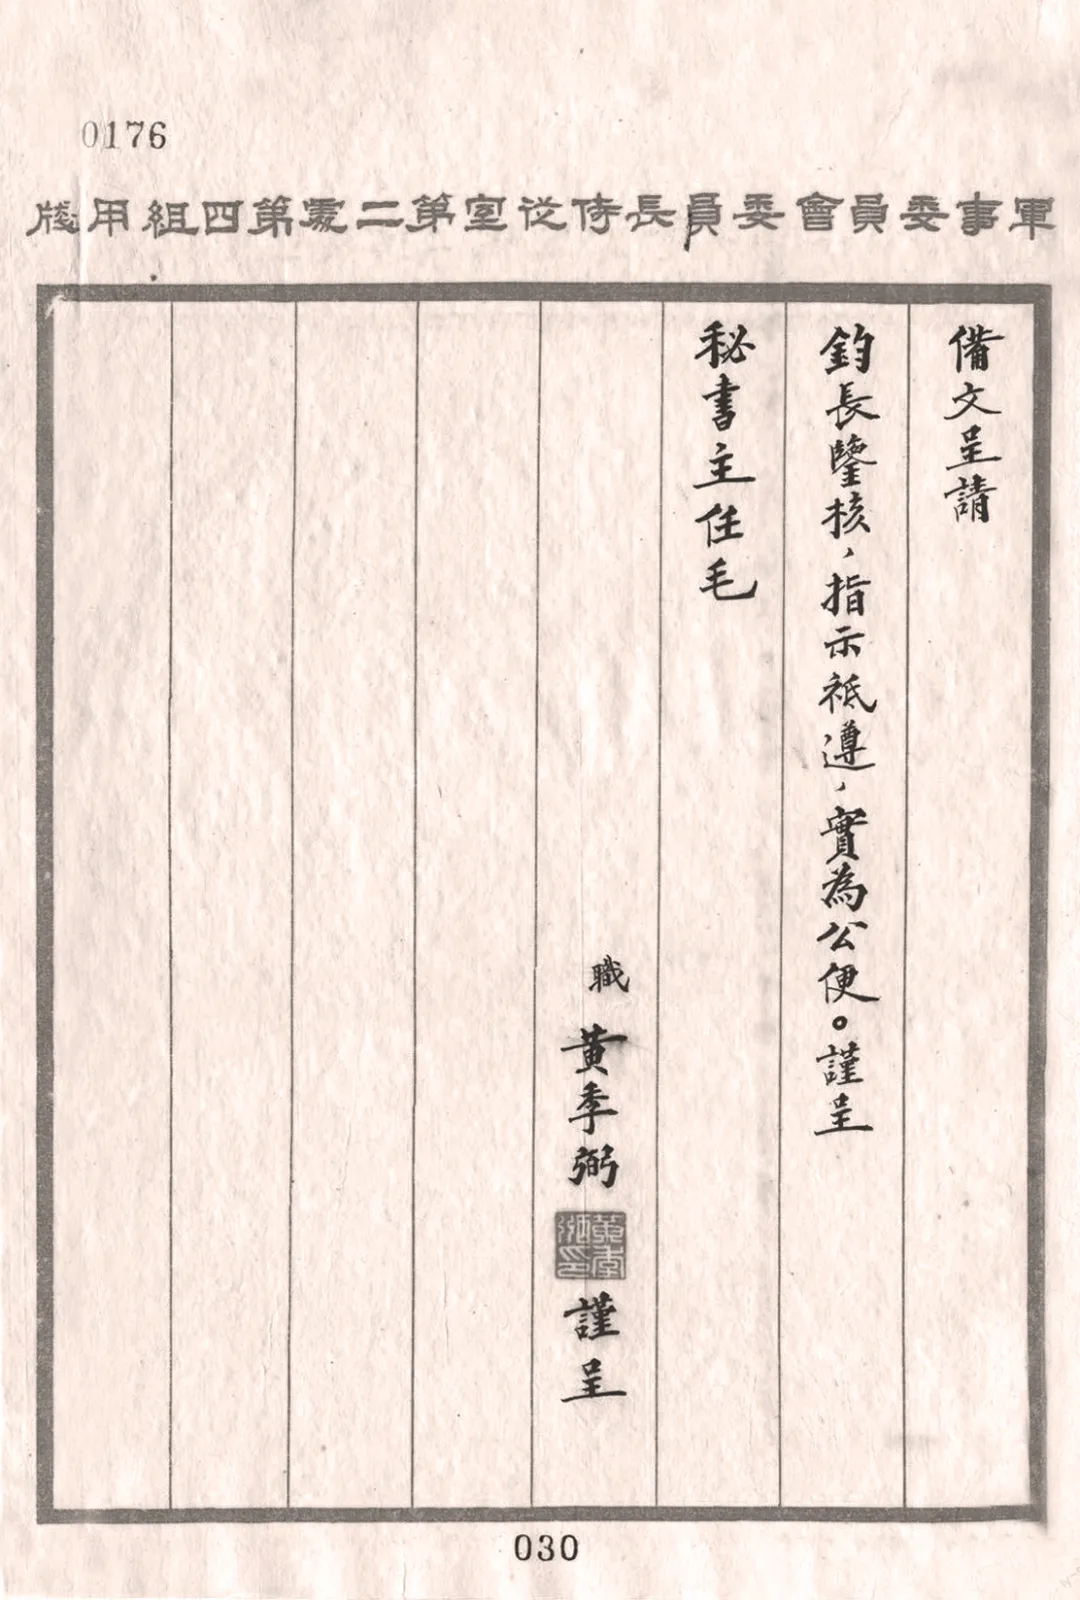 0176
軍事委員會委員長侍從室第二處第四組用牋
備文呈請
鈞長鑒核，指示祗遵，實為公便。謹呈
秘書主任毛
職 黃季弼 黃季弼印 謹呈
030